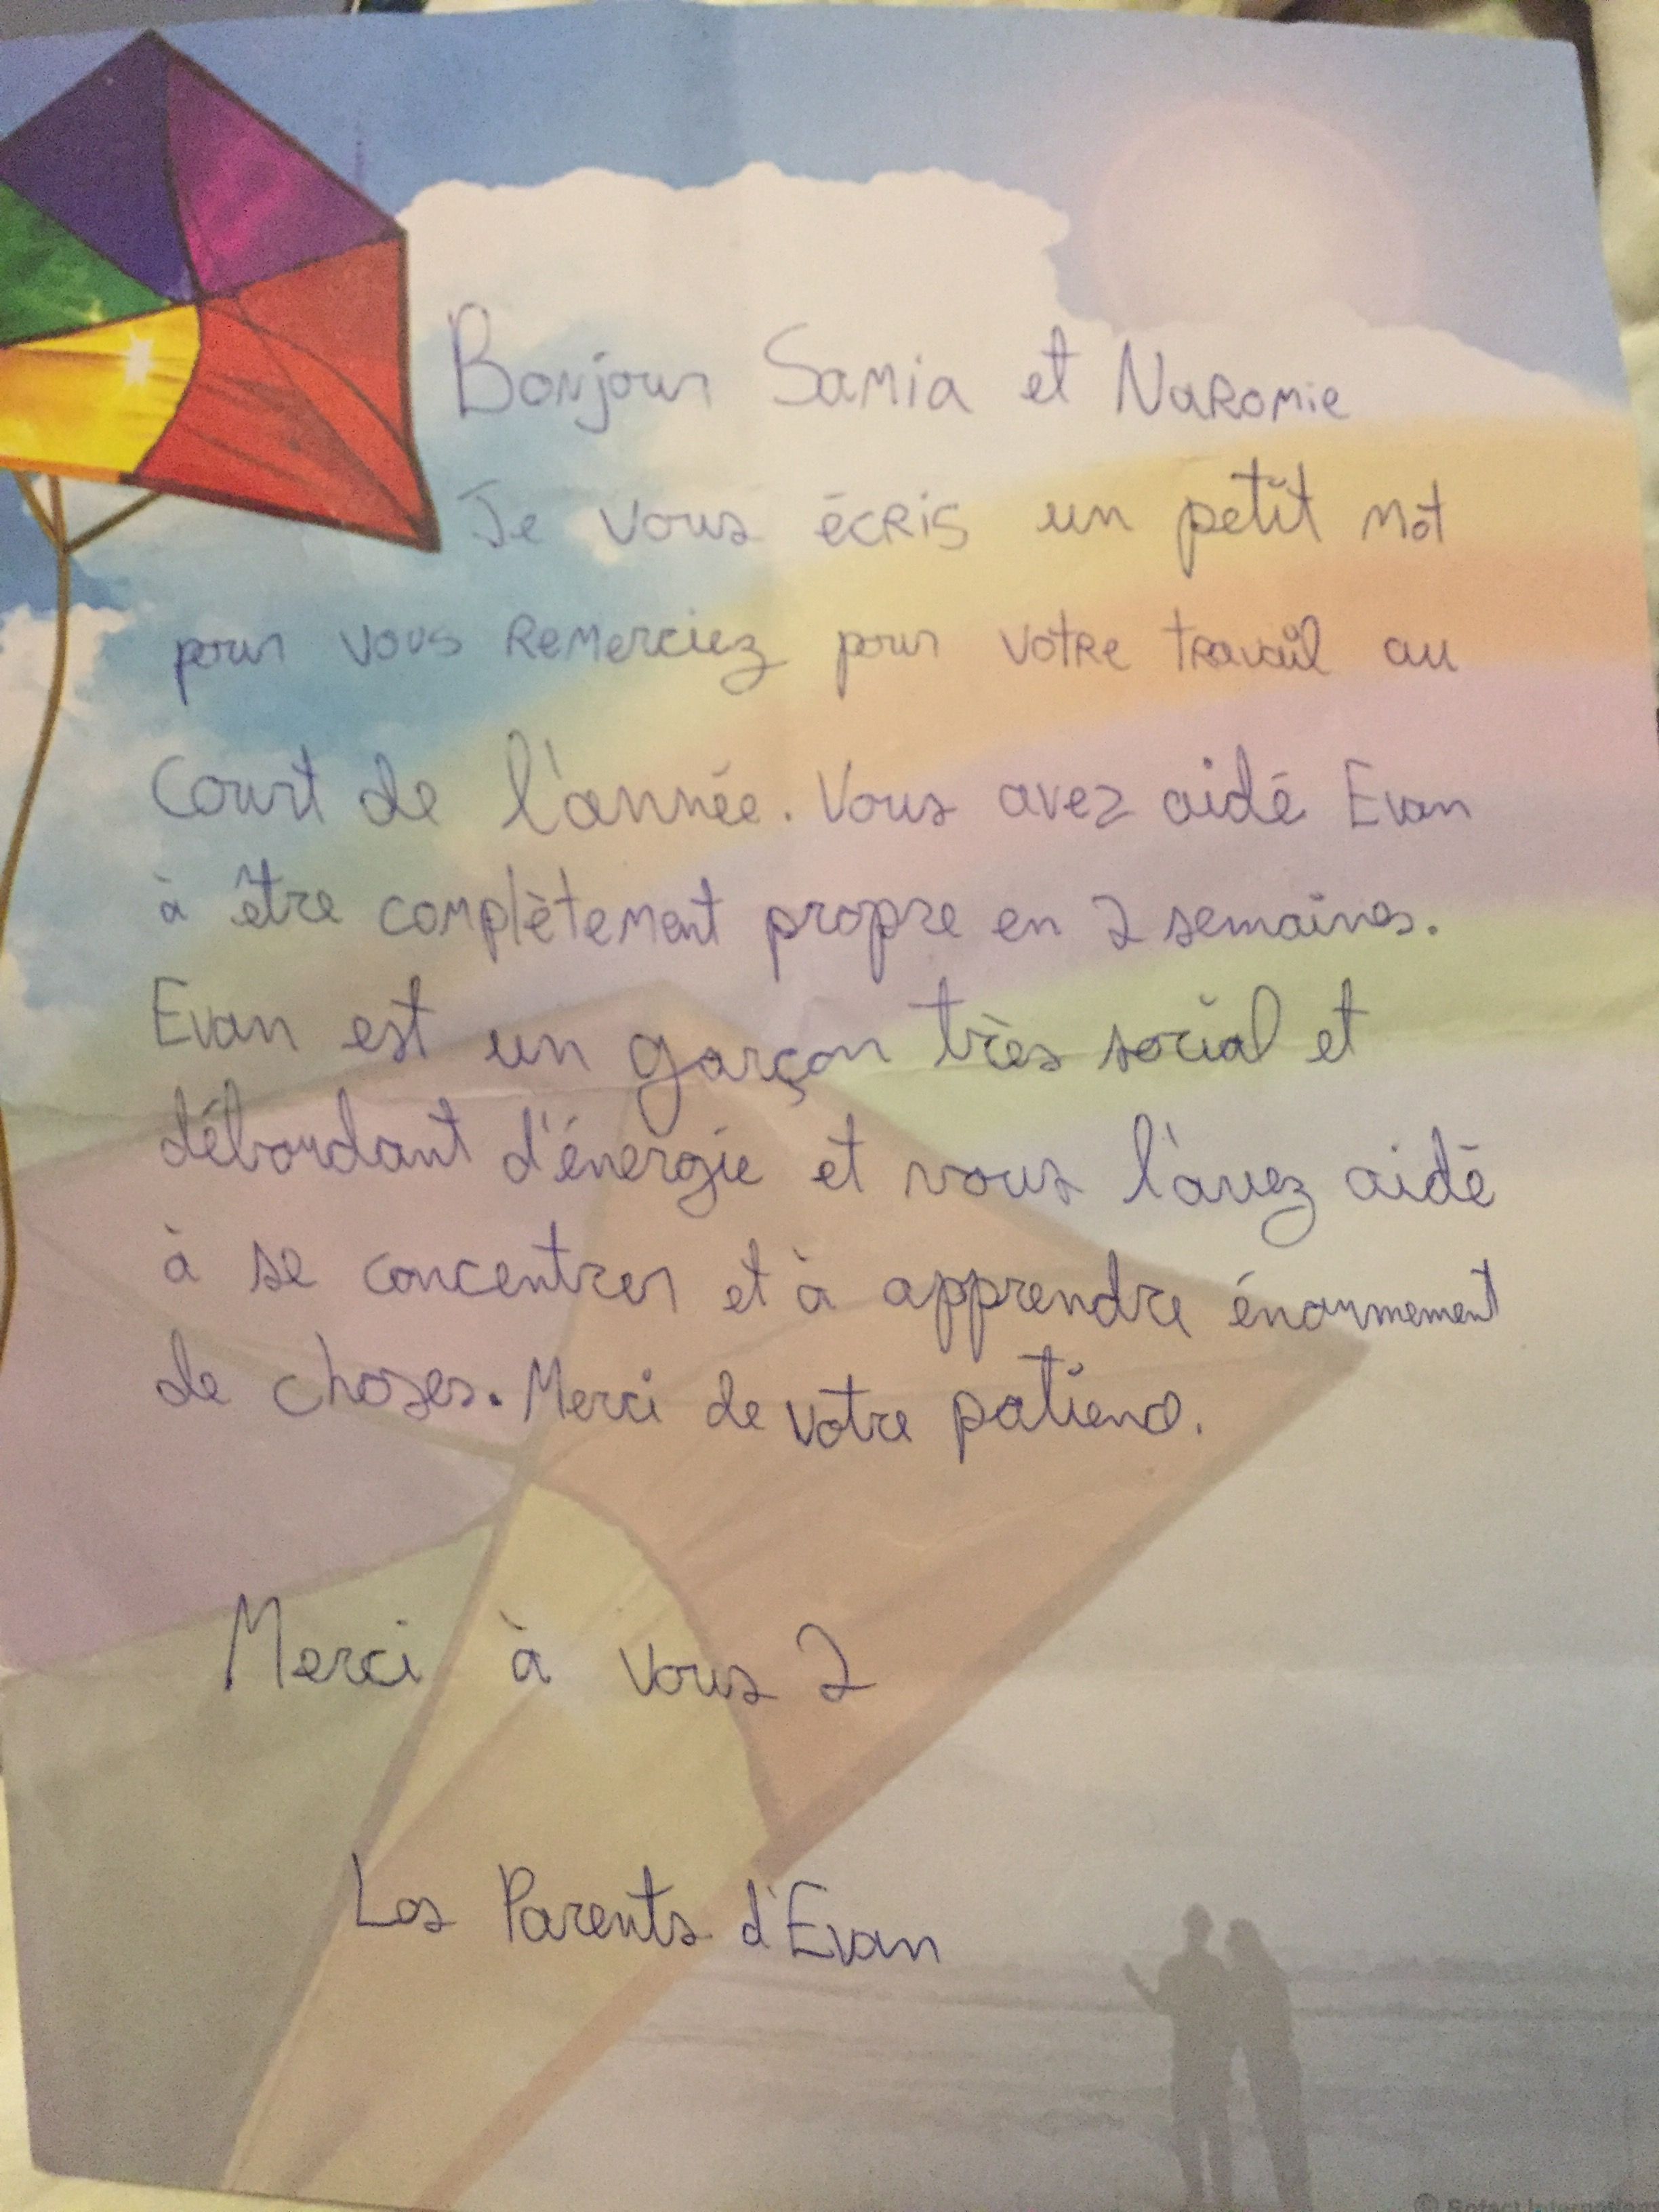 Bonjour Samia et Naromie
Je vous écris un petit mot
pour vous remerciez pour votre travail au
court de l'année. Vous avez aidé Evan
à être complètement propre en 2 semaines.
Evan est un garçon très social et
débordant d'énergie et vous l'avez aidé
à se concentrer et à apprendre énormement
de choses. Merci de votre patience.
Merci à vous 2
Les Parents d'Evan